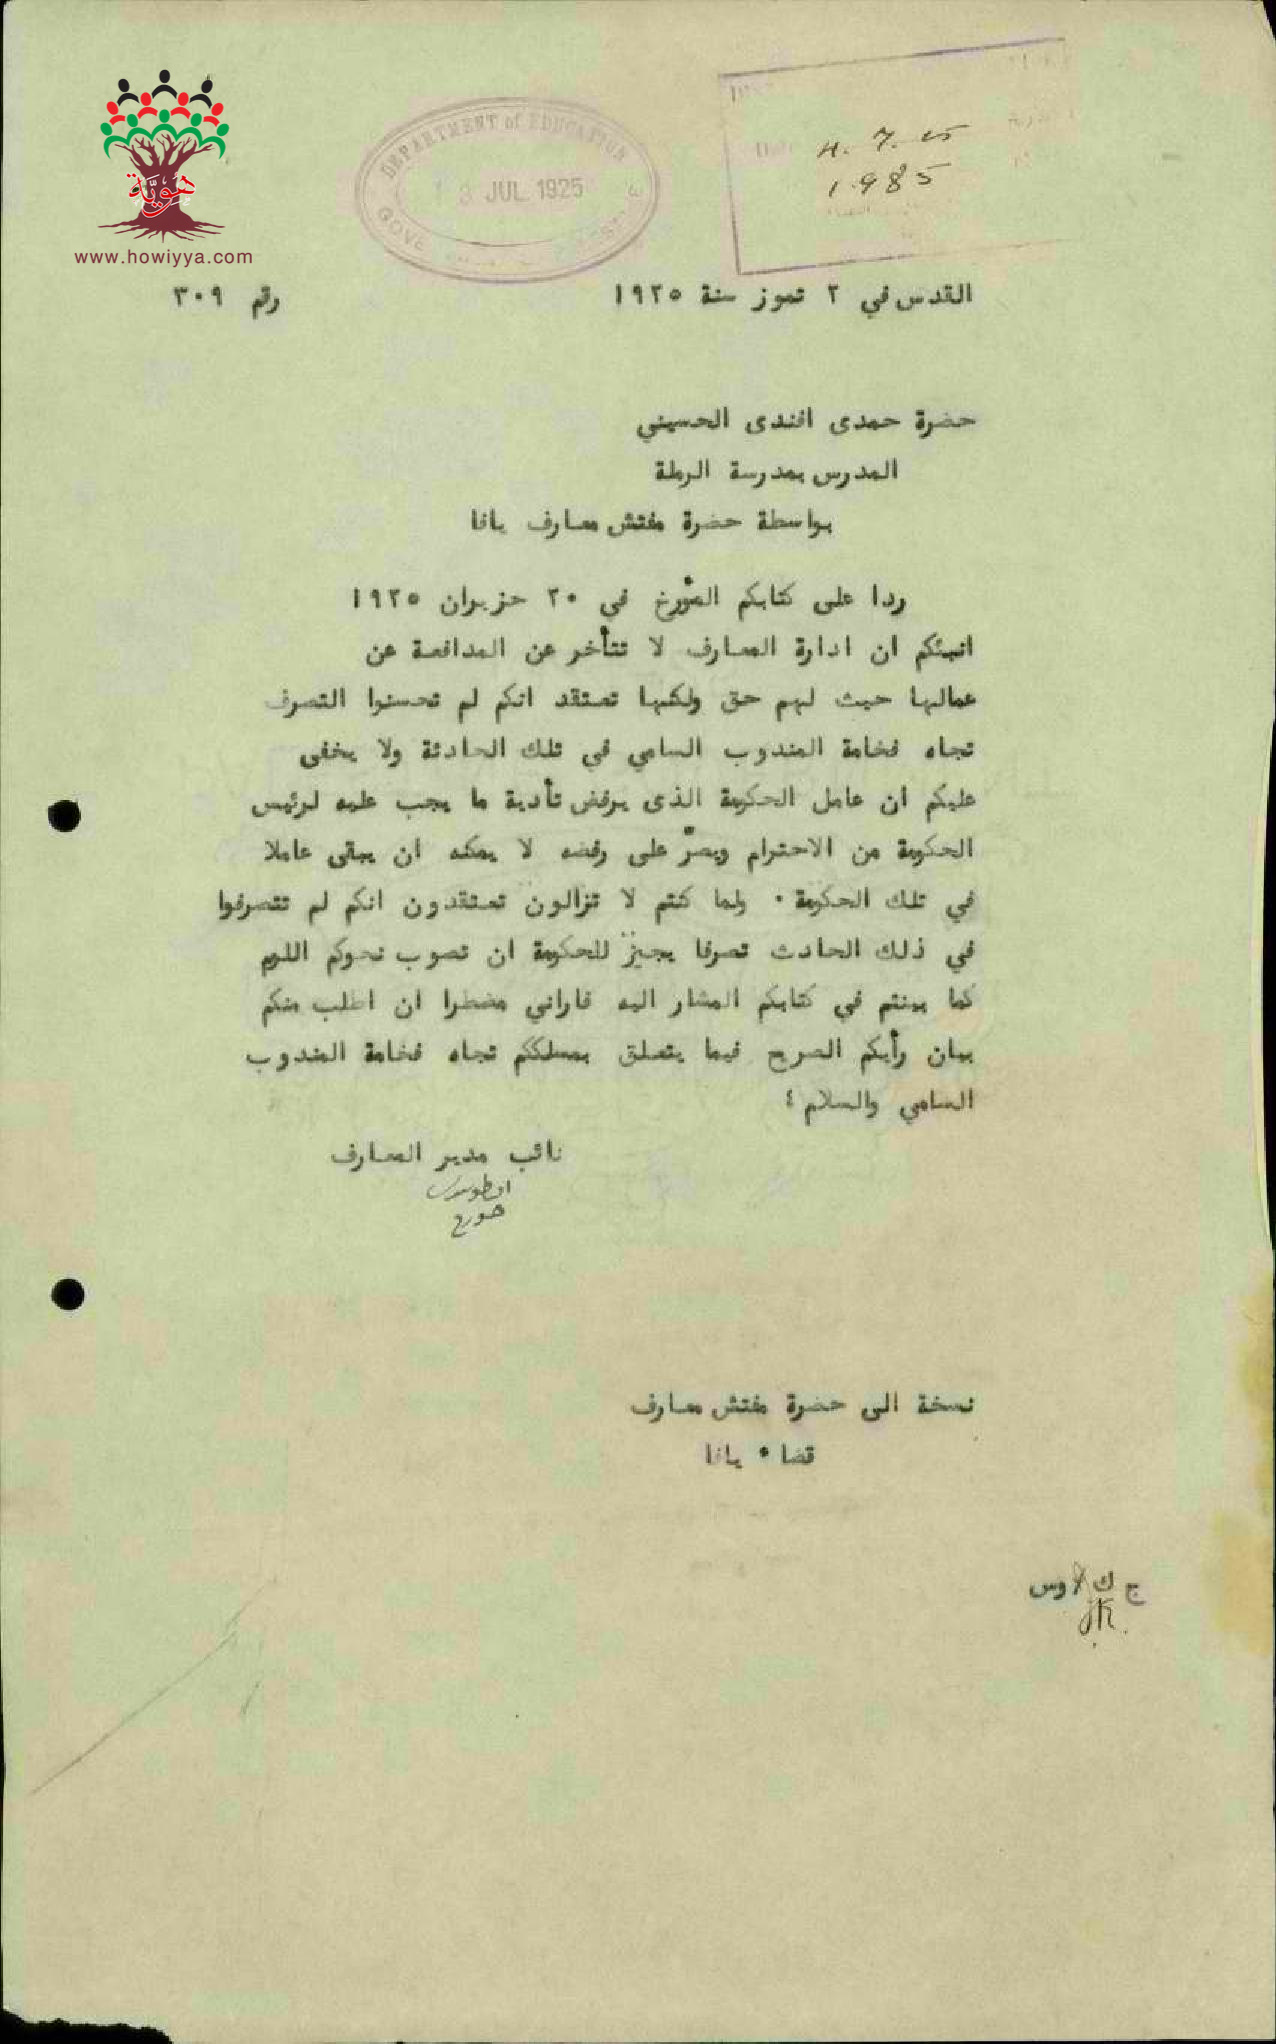 هوية
www.howiyya.com
DEPARTMENT of EDUCATION
JUL 1925
4. 7. 25
1985
القدس في ٢ تموز سنة ١٩٢٥
رقم ٣٠٩
حضرة حمدى افندى الحسيني
المدرس بمدرسة الرملة
بواسطة حضرة مفتش معارف يافا
ردا على كتابكم المؤرخ في ٢٠ حزيران ١٩٢٥
انبئكم ان ادارة المعارف لا تتأخر عن المدافعة عن
عمالها حيث لهم حق ولكنها تعتقد انكم لم تحسنوا التصرف
تجاه فخامة المندوب السامي في تلك الحادثة ولا يخفى
عليكم ان عامل الحكومة الذى يرفض تأدية ما يجب عليه لرئيس
الحكومة من الاحترام ويصرّ على رفضه لا يمكنه ان يبقى عاملا
في تلك الحكومة ٠ ولما كنتم لا تزالون تعتقدون انكم لم تتصرفوا
في ذلك الحادث تصرفا يجيز للحكومة ان تصوب نحوكم اللوم
كما بينتم في كتابكم المشار اليه فاراني مضطرا ان اطلب منكم
بيان رأيكم الصريح فيما يتعلق بمسلككم تجاه فخامة المندوب
السامي والسلام ؛
نائب مدير المعارف
جورج
نسخة الى حضرة مفتش معارف
قضاء يافا
ج ك / وس
JK.